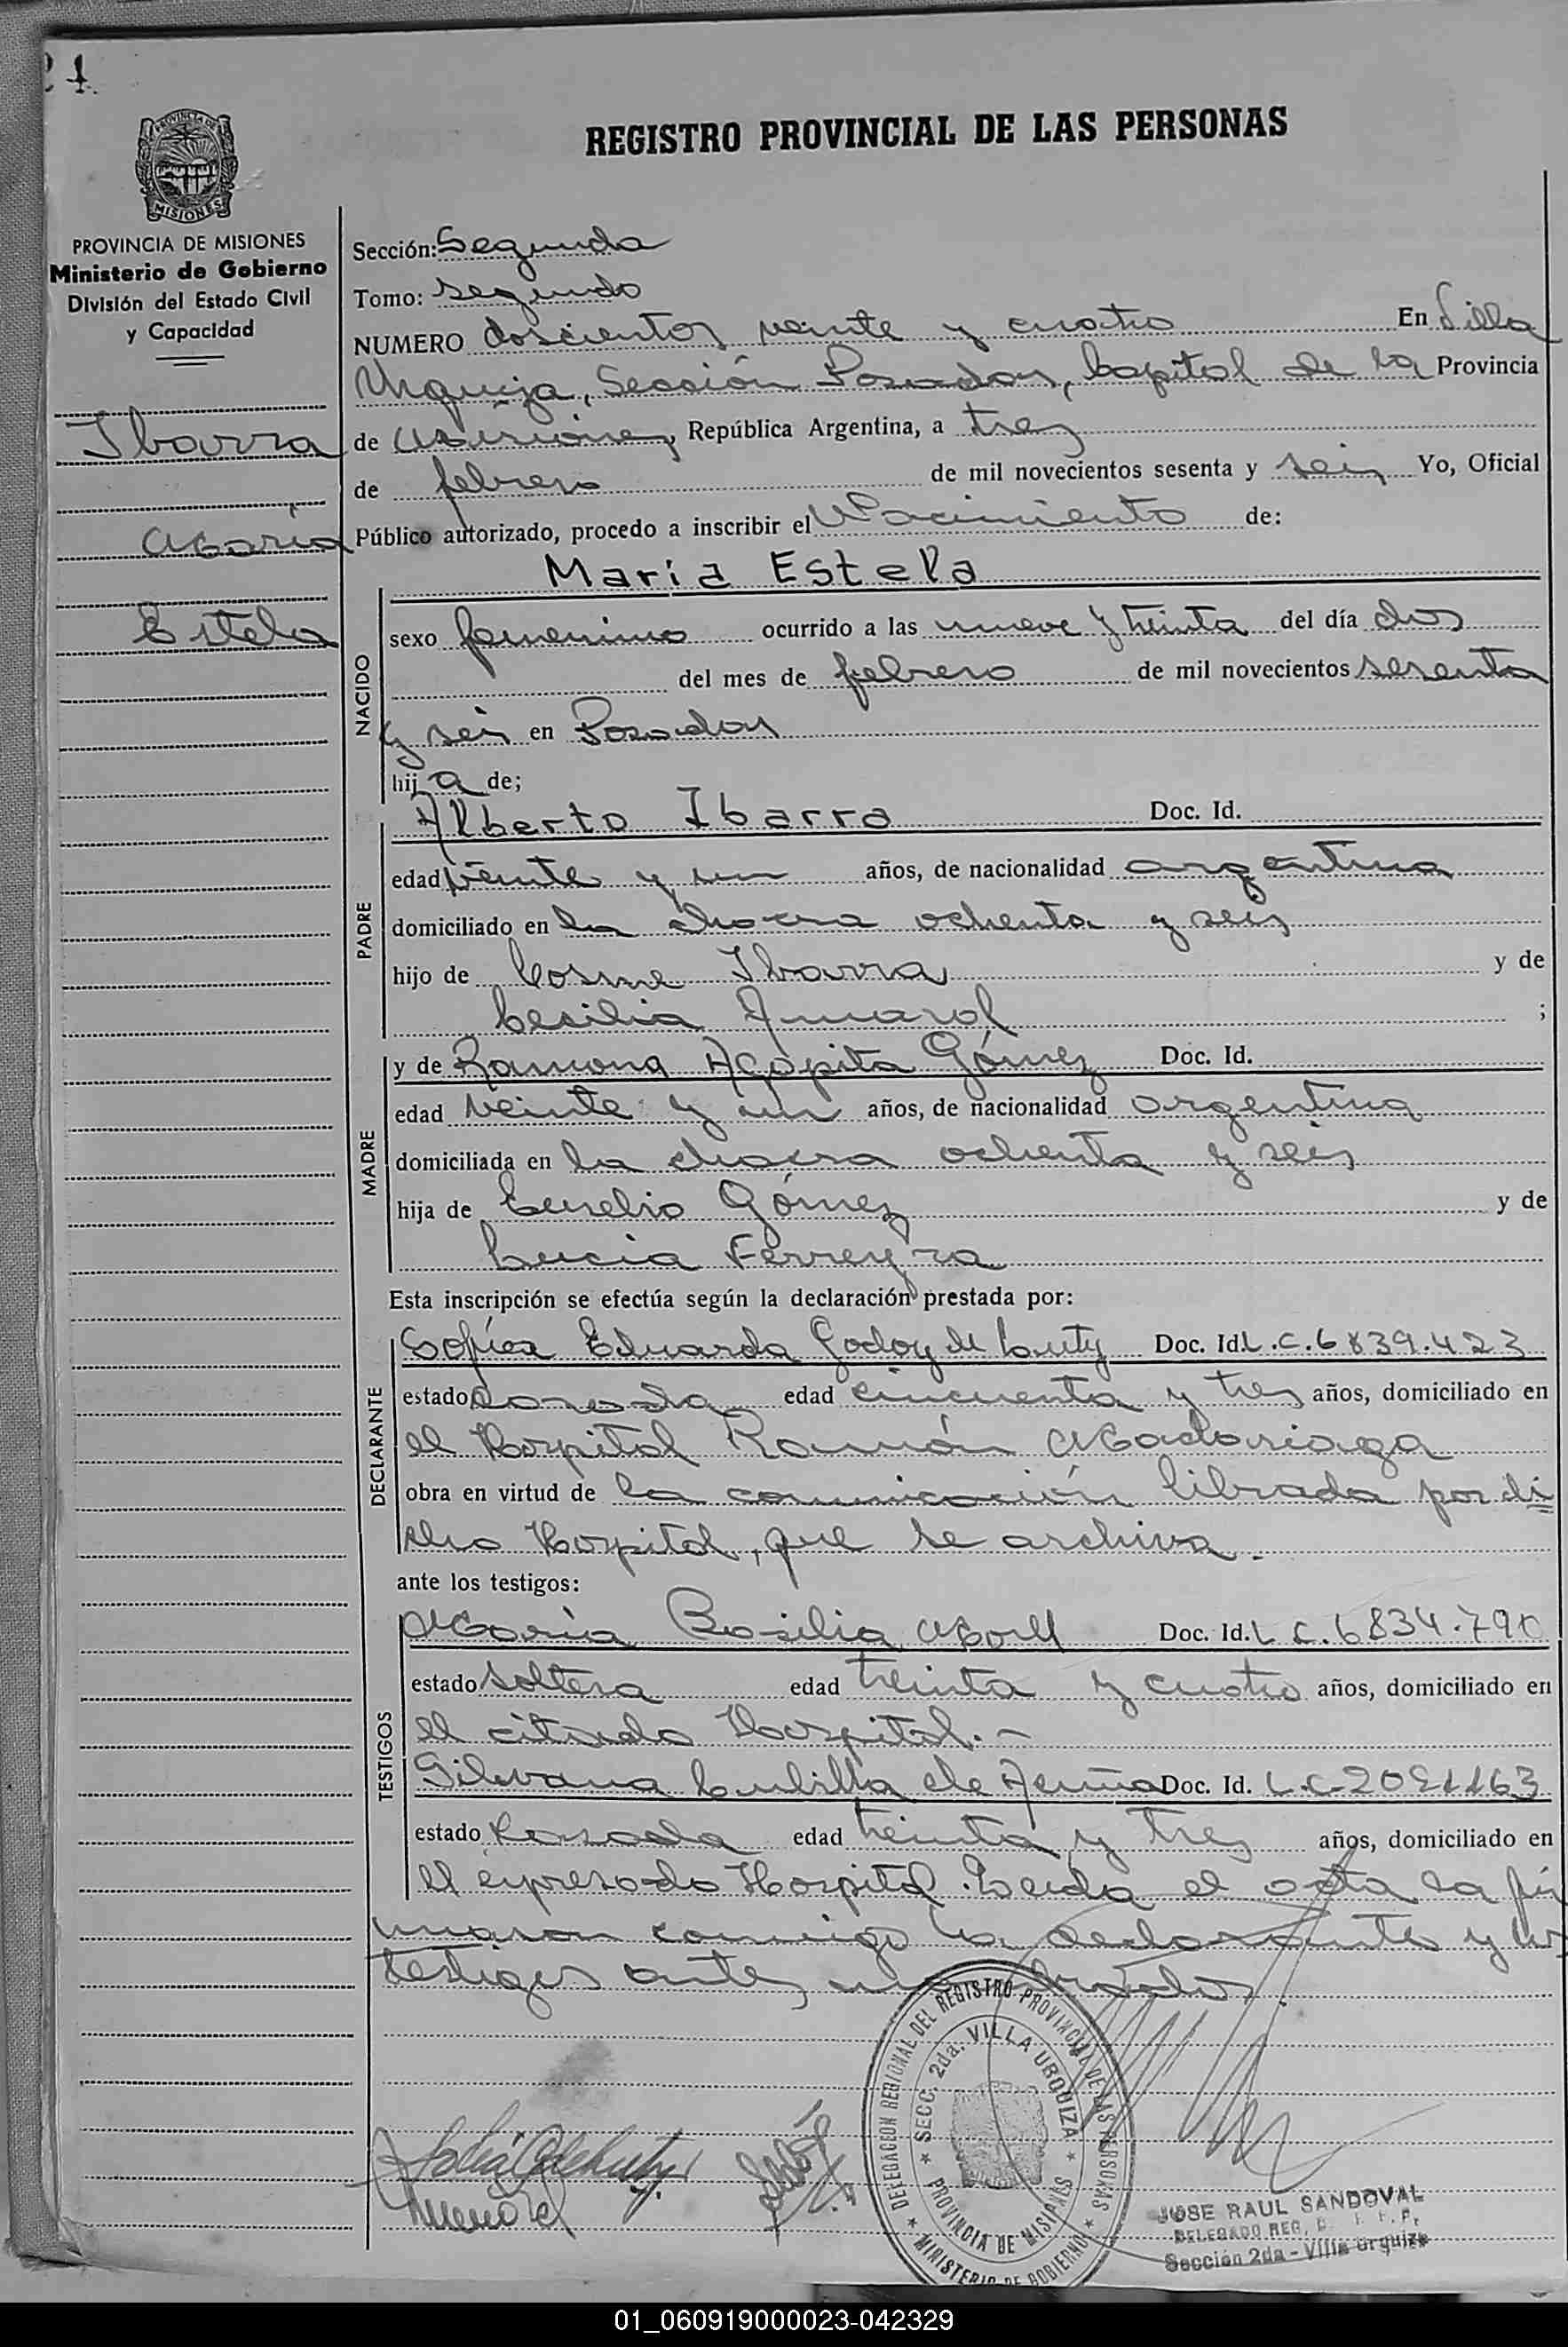 24.
REGISTRO PROVINCIAL DE LAS PERSONAS
PROVINCIA DE MISIONES
MISIONES
PROVINCIA DE MISIONES
Ministerio de Gobierno
División del Estado Civil
y Capacidad
Ibarra
María
Estela
Sección: Segunda
Tomo: segundo
NUMERO doscientos veinte y cuatro En Villa
Urquiza, Sección Posadas, Capital de la Provincia
de Misiones, República Argentina, a tres
de febrero de mil novecientos sesenta y seis Yo, Oficial
Público autorizado, procedo a inscribir el Nacimiento de:
NACIDO
María Estela
sexo femenino ocurrido a las nueve y treinta del día dos
del mes de febrero de mil novecientos sesenta
y seis en Posadas
hij a de;
PADRE
Alberto Ibarra Doc. Id.
edad veinte y un años, de nacionalidad argentina
domiciliado en la chacra ochenta y seis
hijo de Cosme Ibarra y de
Cecilia Amarol ;
MADRE
y de Ramona Agapita Gómez Doc. Id.
edad veinte y un años, de nacionalidad argentina
domiciliada en la chacra ochenta y seis
hija de Eurelio Gómez y de
Lucia Ferreyra
Esta inscripción se efectúa según la declaración prestada por:
DECLARANTE
Sofía Eduarda Godoy de Doc. Id. L.C. 6839.423
estado casada edad cincuenta y tres años, domiciliado en
el Hospital Ramón Madariaga
obra en virtud de la comunicación librada por di
cho Hospital, que se archiva.
ante los testigos:
TESTIGOS
María Basilia Doc. Id. L C. 6834.790
estado soltera edad treinta y cuatro años, domiciliado en
el citado Hospital.-
Silvana Cubilla de Doc. Id. L.C-2021163
estado casada edad treinta y tres años, domiciliado en
el expresado Hospital. Leída el acta la fir
maron conmigo la declarante y los
testigos antes nombrados.
DELEGACION REGIONAL DEL REGISTRO PROVINCIAL DE LAS PERSONAS
SECC. 2da. VILLA URQUIZA
PROVINCIA DE MISIONES
MINISTERIO DE GOBIERNO
JOSE RAUL SANDOVAL
DELEGADO REG.
Sección 2da - Villa Urquiza
01_060919000023-042329